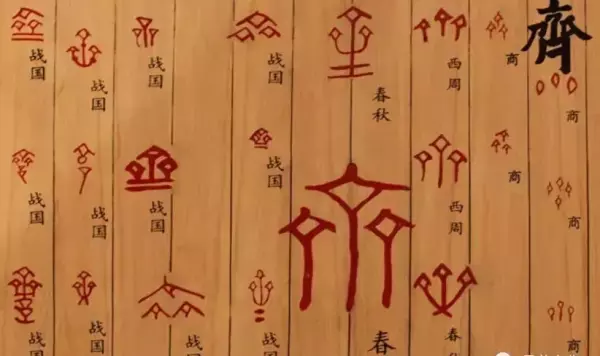 齊
商
商
商
商
商
西周
西周
春
春秋
春
战国
战国
战国
战国
战国
战国
战国
战国
战国
战国
战国
战国